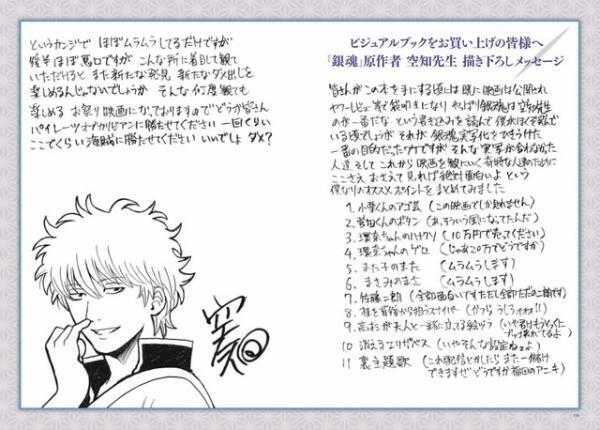 ビジュアルブックをお買い上げの皆様へ
『銀魂』原作者 空知先生 描き下ろしメッセージ
皆さんがこの本を手にする頃には既に映画は公開され
ヤフーレビュー等で袋叩きになり やっぱり銀魂は空知先生
のが一番だな という書き込みを読んで 僕がほくそ笑んで
いる頃でしょうが それが銀魂実写化を
一番の目的だったワケですが そんな実写が合わなかった
人達 そして これから映画を観にいく奇特な人達のために
ここさえ おさえて見れば絶対面白いよ という
僕なりのオススメポイントをまとめてみました
1. 小栗くんのアゴ芸 (この映画でしか見れません)
2. 菅田くんのボタン (あ、そういう風になってたんだ)
3. 環奈ちゃんのハナクソ (10万円で売ってください)
4. 環奈ちゃんのゲロ (じゃあ20万でどうですか)
5. また子のまた (ムラムラします)
6. まさみのまさ (ムラムラします)
7. 佐藤二朗 (全部面白いです ただし全部ただの二朗です)
8. 桂を背後から狙うスナイパー (かつら うしろォォ!!)
9. 高杉が夫人と一緒に立ってる絵ヅラ (いや君はもうとっくに
ブッ壊れてるよ)
10. 消えるエリザベス (いや そんな設定ねェよ)
11. 裏主題歌 (これ配信とかしたら また一儲け
できますぜ どうですか福田のアニキ)
というカンジで ほぼムラムラしてるだけですが
後半ほぼ悪口ですが こんな所に着目して観て
いただけると また新たな発見 新たなダメ出しを
楽しめるんじゃないでしょうか そんな何度観ても
楽しめる お祭り映画になっておりますので どうか皆さん
パイレーツオブカリビアンに勝たせてください 一回くらい
ここでくらい 海賊に勝たせてください いいでしょ ダメ?